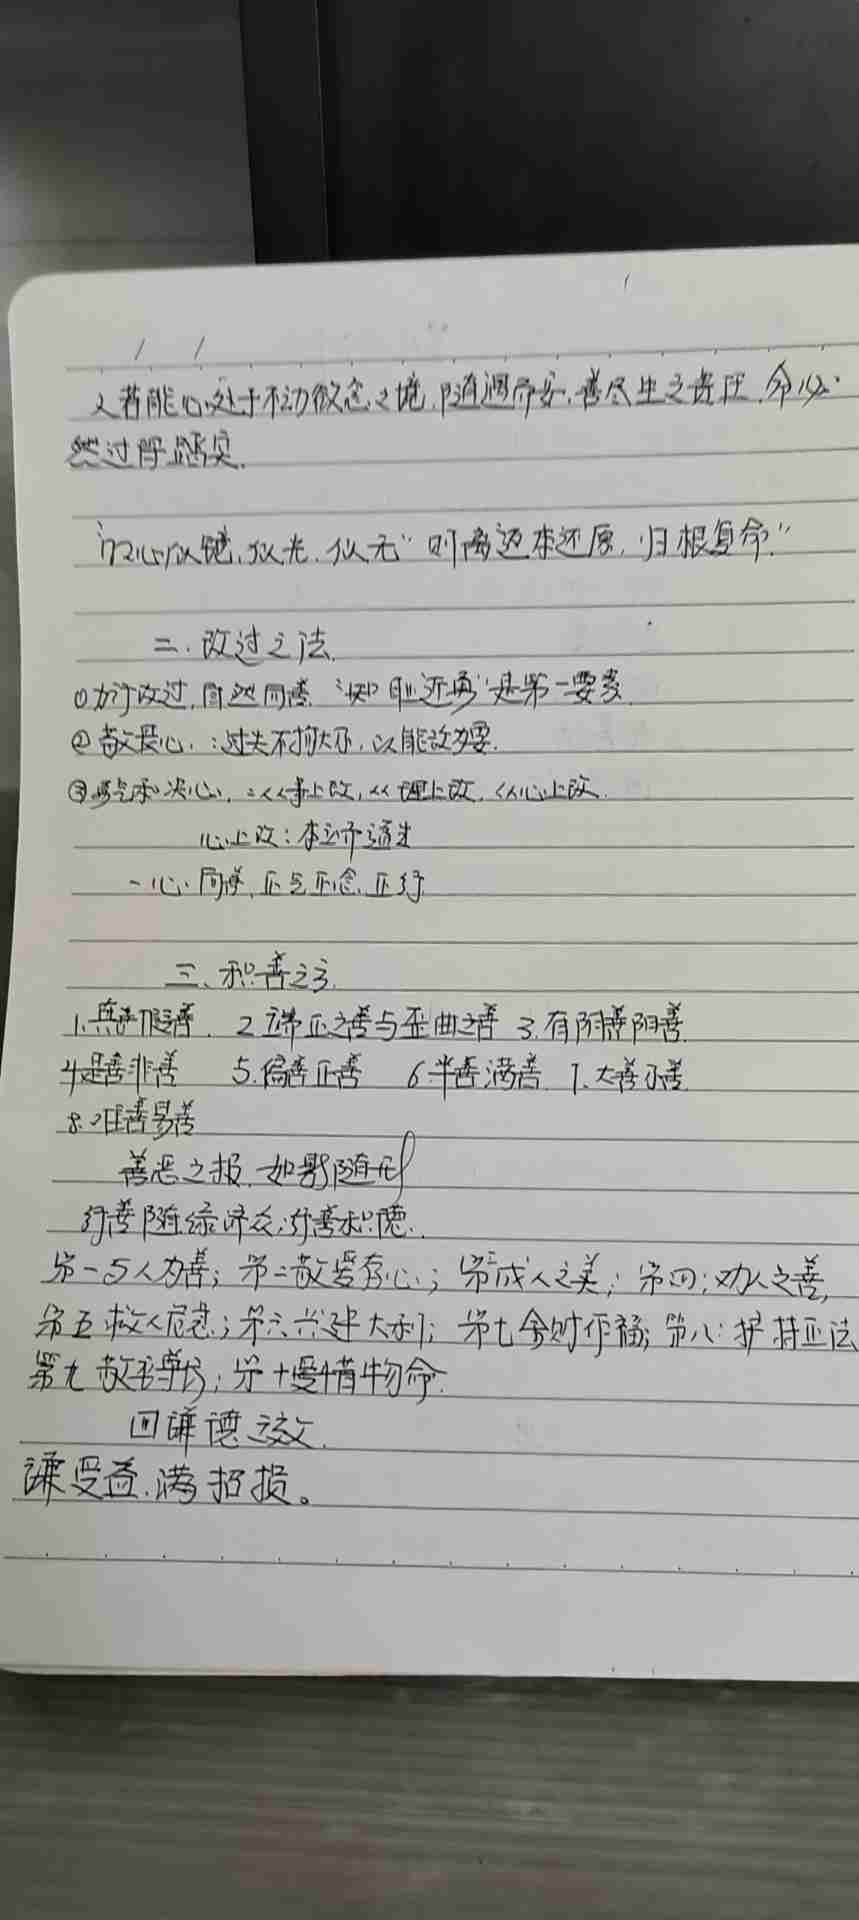 人若能心处于不动微念之境,随遇而安,善尽生之责任,命必
然过得踏实.
心似镜,似光,似无"则离迈本还原,归根复命."
二.改过之法.
①力行改过,自然向善."知耻近勇"是第一要素.
②敬畏心.:过失不拘大小,以能改为要.
③勇气和决心.:从事上改,从理上改,从心上改.
心上改:本立而道生
一心向善,正气正念,正行
三.积善之方.
1.真善假善. 2.端正之善与歪曲之善 3.有阴善阳善.
4.是善非善 5.偏善正善 6.半善满善. 7.大善小善.
8.难善易善
善恶之报,如影随形
行善随缘济众:行善积德.
第一与人为善;第二敬爱存心;第三成人之美;第四:劝人之善,
第五救人危急;第六兴建大利;第七舍财作福;第八:护持正法
第九 敬重尊长;第十爱惜物命.
四谦德之效.
谦受益.满招损。